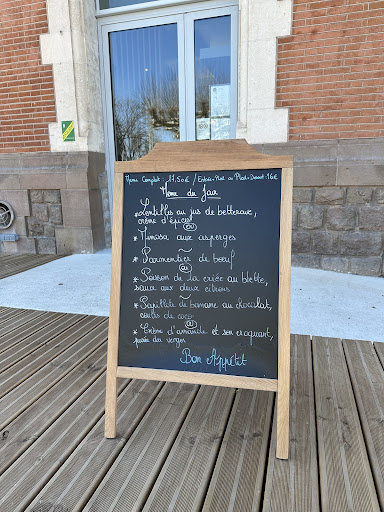 Menu Complet : 17.50€ / Entrée-Plat ou Plat-Dessert 16€
Menu du Jour
* Lentilles au jus de betterave,
crème d'épices
ou
* Mimosa aux asperges
~
* Parmentier de bœuf
ou
* Poisson de la criée au blette,
sauce aux deux citrons
~
* Papillote de banane au chocolat,
coulis de coco
ou
* Crème d'amande et son croquant,
purée du verger
Bon Appétit